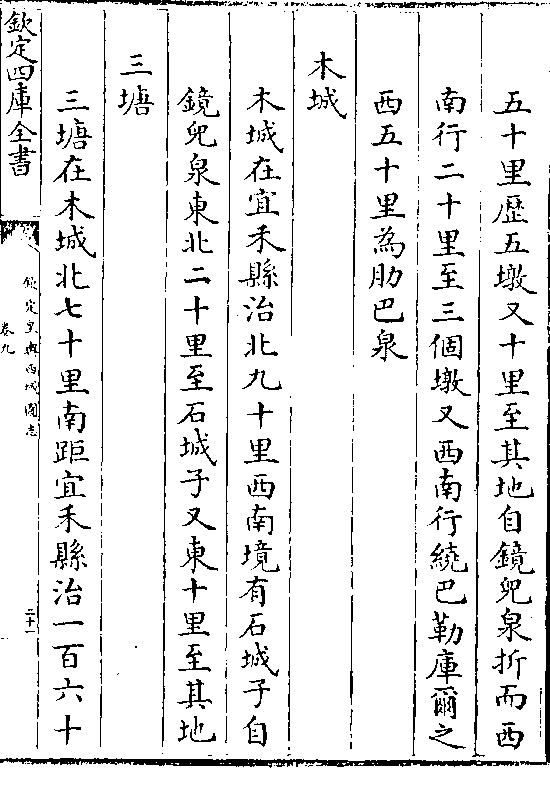 五十里歴五墩又十里至其地自鏡兒泉折而西
南行二十里至三個墩又西南行繞巴勒庫爾之
西五十里為肋巴泉
木城
木城在宜禾縣治北九十里西南境有石城子自
鏡兒泉東北二十里至石城子又東十里至其地
三塘
三塘在木城北七十里南距宜禾縣治一百六十
欽定四庫全書
欽定皇輿西域圖志
卷九
二十一